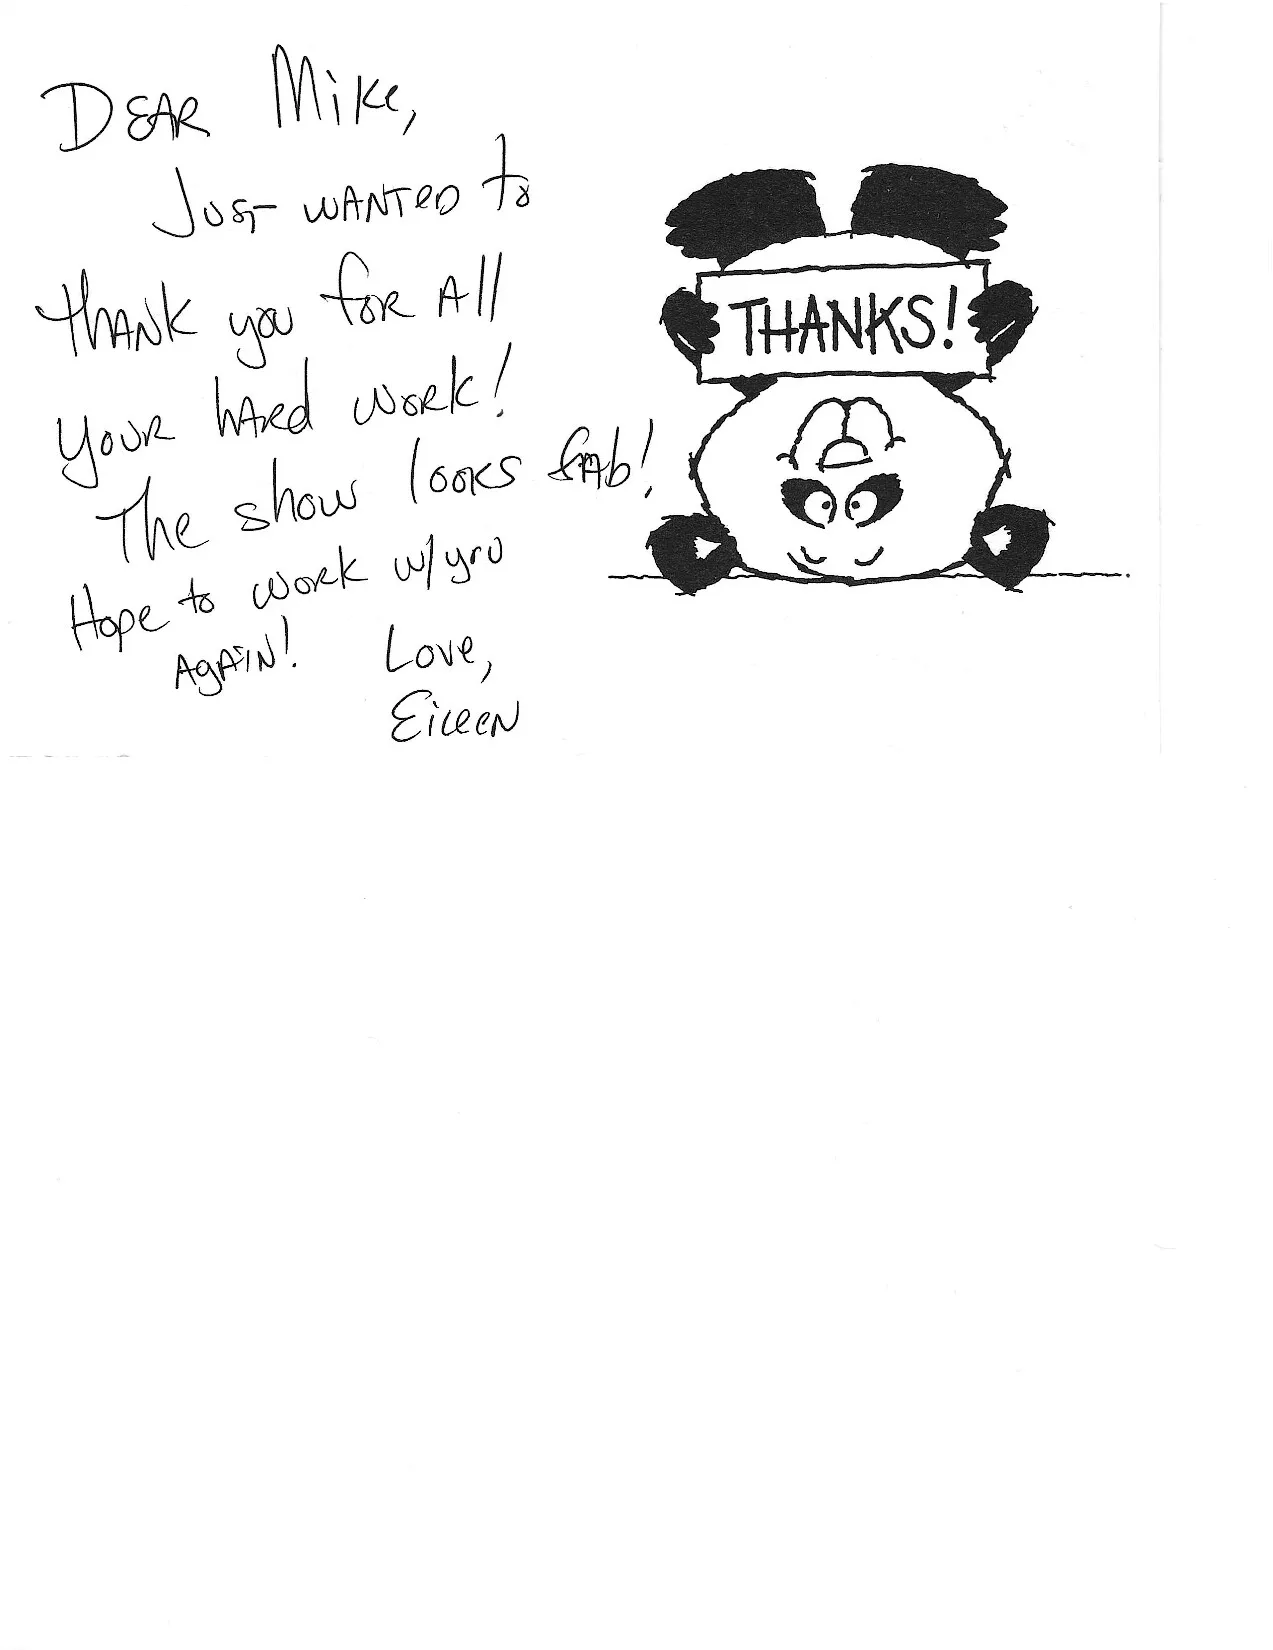 DEAR Mike,
Just wanted to
thank you for all
your hard work!
The show looks fab!
Hope to work w/you
again!
Love,
Eileen
THANKS!